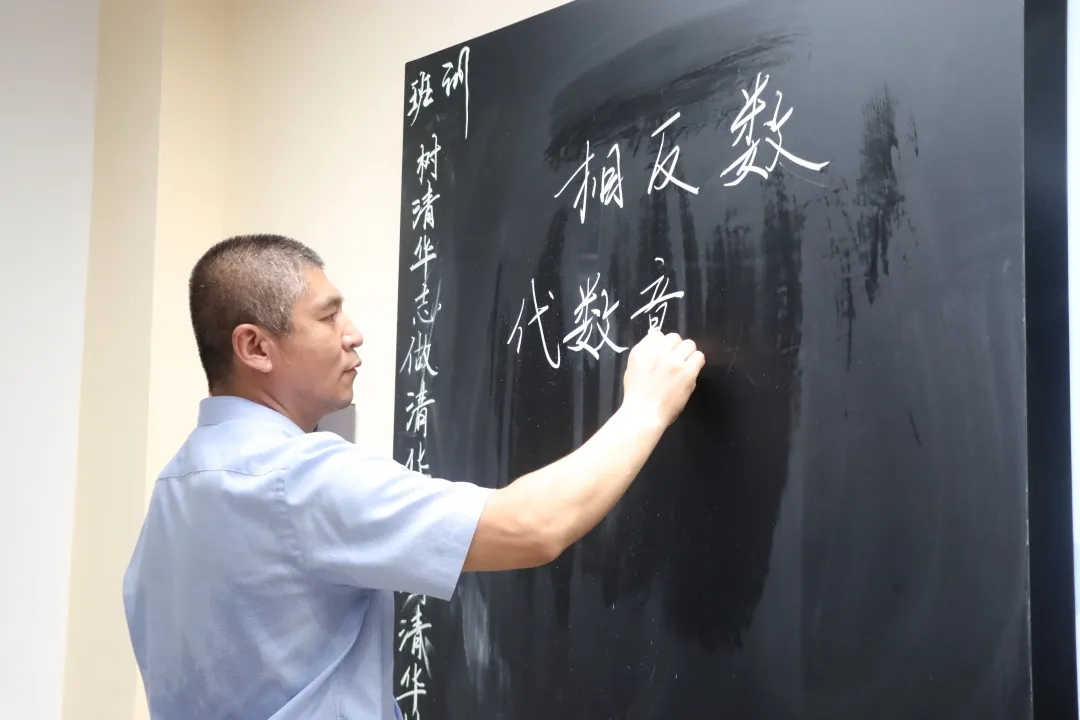 班训
树清华志做清华
清华
相反数
代数意